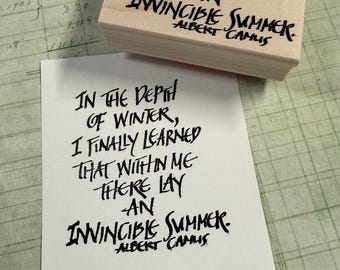 INVINCIBLE SUMMER.
ALBERT CAMUS
IN THE DEPTH
OF WINTER,
I FINALLY LEARNED
THAT WITHIN ME
THERE LAY
AN
INVINCIBLE SUMMER.
ALBERT CAMUS